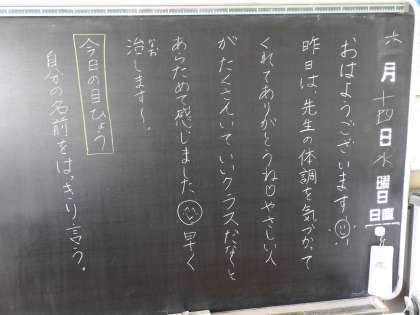 六月十四日水曜日
日直
おはようございます
昨日は、先生の体調を気づかって
くれてありがとうね♡やさしい人
がたくさんいていいクラスだなぁと
あらためて感じました 早く
治します〜。
なお
今日の目ひょう
自分の名前をはっきり言う。